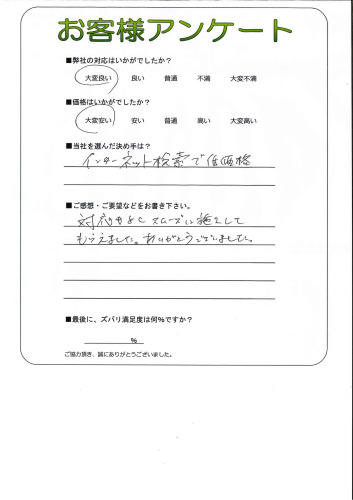 お客様アンケート
■弊社の対応はいかがでしたか?
大変良い 良い 普通 不満 大変不満
■価格はいかがでしたか?
大変安い 安い 普通 高い 大変高い
■当社を選んだ決め手は?
インターネット検索で低価格
■ご感想・ご要望などをお書き下さい。
対応もよくスムーズに施工して
もらえました。ありがとうございました。
■最後に、ズバリ満足度は何%ですか?
%
ご協力頂き、誠にありがとうございました。